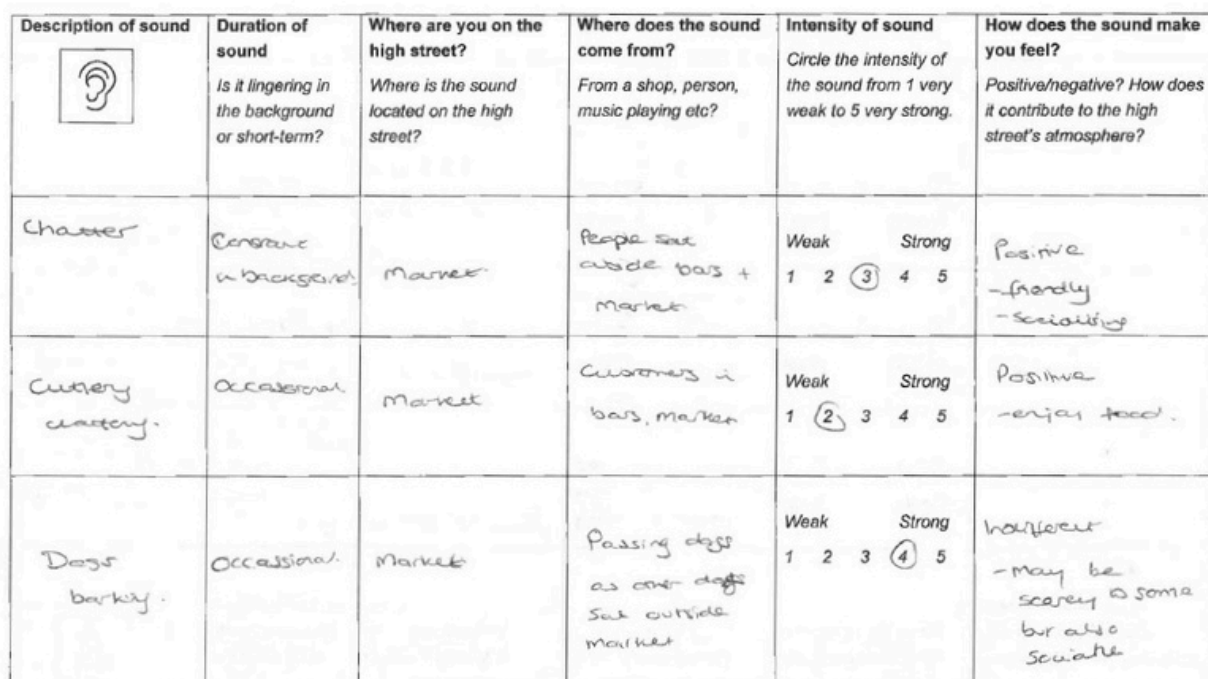 Description of sound
Duration of
sound
Is it lingering in
the background
or short-term?
Where are you on the
high street?
Where is the sound
located on the high
street?
Where does the sound
come from?
From a shop, person,
music playing etc?
Intensity of sound
Circle the intensity of
the sound from 1 very
weak to 5 very strong.
How does the sound make
you feel?
Positive/negative? How does
it contribute to the high
street's atmosphere?
Chatter
Constant
in background
Market
People sat
outside bars +
market
Weak Strong
1 2 3 4 5
Positive
- friendly
- socialising
Cutlery
clattery.
Occassional
Market
Customers in
bars, market
Weak Strong
1 2 3 4 5
Positive
- enjoy food.
Dogs
barking.
Occassional
Market
Passing dogs
as other dogs
sat outside
market
Weak Strong
1 2 3 4 5
Indifferent
- may be
scarey to some
but also
sociable